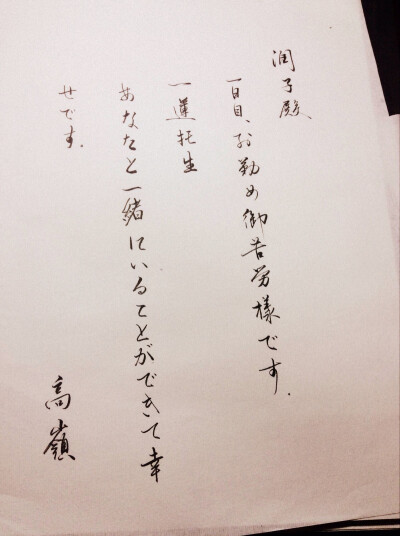 润子殿
一日目、お勤め御苦労様です.
一蓮托生
あなたと一緒にいることができて幸
せです.
高嶺